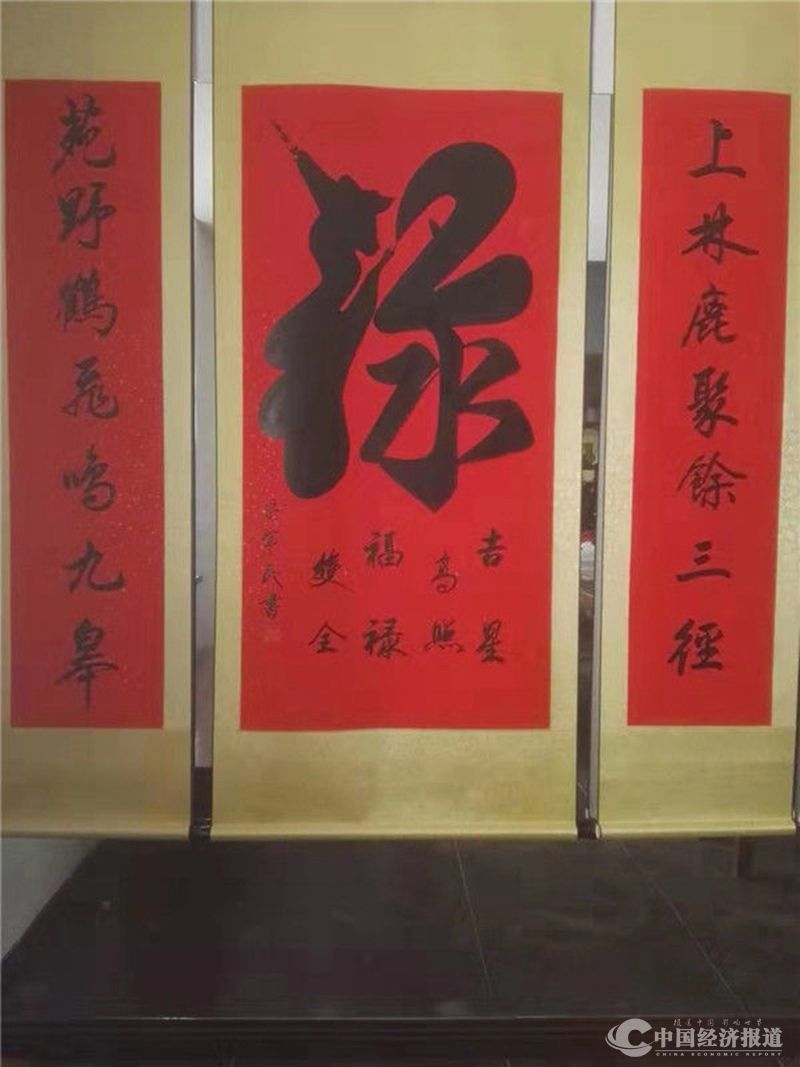 上林鹿聚餘三徑
禄
吉星
高照
福禄
雙全
民書
苑野鶴飛鳴九皋
报道中国 影响世界
中国经济报道
CHINA ECONOMIC REPORT